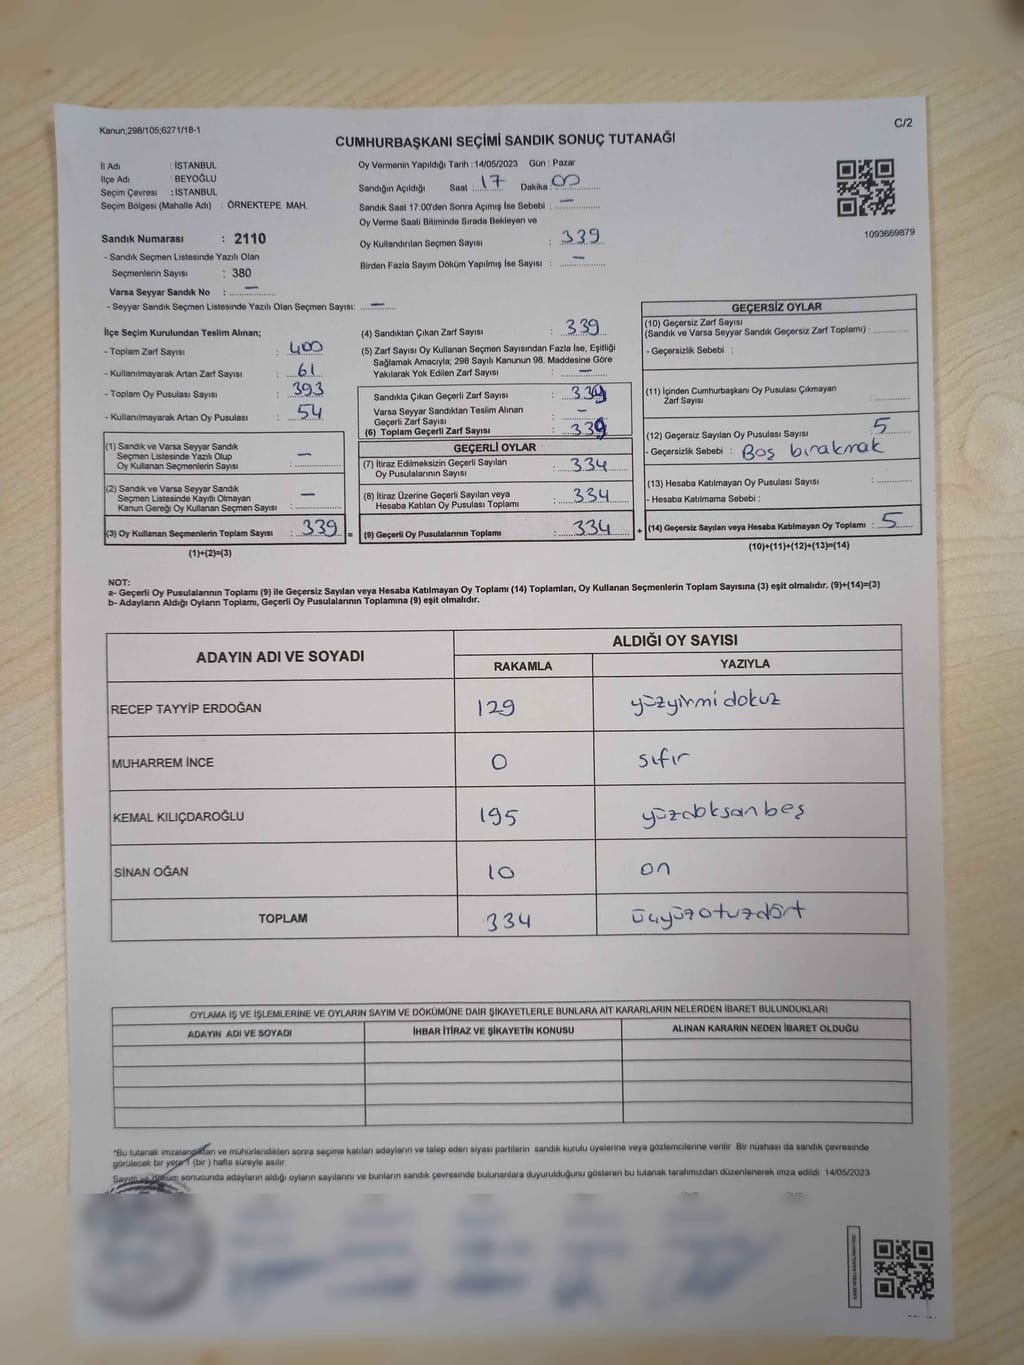 Kanun;298/105;6271/18-1
C/2
CUMHURBAŞKANI SEÇİMİ SANDIK SONUÇ TUTANAĞI
İl Adı : İSTANBUL
İlçe Adı : BEYOĞLU
Seçim Çevresi : İSTANBUL
Seçim Bölgesi (Mahalle Adı) : ÖRNEKTEPE MAH.
Sandık Numarası : 2110
- Sandık Seçmen Listesinde Yazılı Olan
Seçmenlerin Sayısı : 380
Varsa Seyyar Sandık No : —
- Seyyar Sandık Seçmen Listesinde Yazılı Olan Seçmen Sayısı: —
Oy Vermenin Yapıldığı Tarih : 14/05/2023 Gün : Pazar
Sandığın Açıldığı Saat : 17 Dakika : 00
Sandık Saat 17:00'den Sonra Açımış İse Sebebi : —
Oy Verme Saati Bitiminde Sırada Bekleyen ve
Oy Kullandırılan Seçmen Sayısı : 339
Birden Fazla Sayım Döküm Yapılmış İse Sayısı : —
1093669879
İlçe Seçim Kurulundan Teslim Alınan;
- Toplam Zarf Sayısı : 400
- Kullanılmayarak Artan Zarf Sayısı : 61
- Toplam Oy Pusulası Sayısı : 393
- Kullanılmayarak Artan Oy Pusulası : 54
(1) Sandık ve Varsa Seyyar Sandık
Seçmen Listesinde Yazılı Olup
Oy Kullanan Seçmenlerin Sayısı : —
(2) Sandık ve Varsa Seyyar Sandık
Seçmen Listesinde Kayıtlı Olmayan
Kanun Gereği Oy Kullanan Seçmen Sayısı : —
(3) Oy Kullanan Seçmenlerin Toplam Sayısı : 339 =
(1)+(2)=(3)
(4) Sandıktan Çıkan Zarf Sayısı : 339
(5) Zarf Sayısı Oy Kullanan Seçmen Sayısından Fazla İse, Eşitliği
Sağlamak Amacıyla; 298 Sayılı Kanunun 98. Maddesine Göre
Yakılarak Yok Edilen Zarf Sayısı : —
Sandıkta Çıkan Geçerli Zarf Sayısı : 339
Varsa Seyyar Sandıktan Teslim Alınan
Geçerli Zarf Sayısı : —
(6) Toplam Geçerli Zarf Sayısı : 339
GEÇERLİ OYLAR
(7) İtiraz Edilmeksizin Geçerli Sayılan
Oy Pusulalarının Sayısı : 334
(8) İtiraz Üzerine Geçerli Sayılan veya
Hesaba Katılan Oy Pusulası Toplamı : 334
(9) Geçerli Oy Pusulalarının Toplamı : 334 +
GEÇERSİZ OYLAR
(10) Geçersiz Zarf Sayısı
(Sandık ve Varsa Seyyar Sandık Geçersiz Zarf Toplamı) :
- Geçersizlik Sebebi :
(11) İçinden Cumhurbaşkanı Oy Pusulası Çıkmayan
Zarf Sayısı :
(12) Geçersiz Sayılan Oy Pusulası Sayısı : 5
- Geçersizlik Sebebi : Boş bırakmak
(13) Hesaba Katılmayan Oy Pusulası Sayısı :
- Hesaba Katılmama Sebebi :
(14) Geçersiz Sayılan veya Hesaba Katılmayan Oy Toplamı : 5
(10)+(11)+(12)+(13)=(14)
NOT:
a- Geçerli Oy Pusulalarının Toplamı (9) ile Geçersiz Sayılan veya Hesaba Katılmayan Oy Toplamı (14) Toplamları, Oy Kullanan Seçmenlerin Toplam Sayısına (3) eşit olmalıdır. (9)+(14)=(3)
b- Adayların Aldığı Oyların Toplamı, Geçerli Oy Pusulalarının Toplamına (9) eşit olmalıdır.
ADAYIN ADI VE SOYADI
ALDIĞI OY SAYISI
RAKAMLA YAZIYLA
RECEP TAYYİP ERDOĞAN 129 yüzyirmi dokuz
MUHARREM İNCE 0 sıfır
KEMAL KILIÇDAROĞLU 195 yüzdoksan beş
SİNAN OĞAN 10 on
TOPLAM 334 üçyüzotuzdört
OYLAMA İŞ VE İŞLEMLERİNE VE OYLARIN SAYIM VE DÖKÜMÜNE DAİR ŞİKAYETLERLE BUNLARA AİT KARARLARIN NELERDEN İBARET BULUNDUKLARI
ADAYIN ADI VE SOYADI İHBAR İTİRAZ VE ŞİKAYETİN KONUSU ALINAN KARARIN NEDEN İBARET OLDUĞU
*Bu tutanak imzalandıktan ve mühürlendikten sonra seçime katılan adayların ve talep eden siyasi partilerin sandık kurulu üyelerine veya gözlemcilerine verilir. Bir nüshası da sandık çevresinde
görülecek bir yere 1 (bir ) hafta süreyle asılır.
Sayım ve döküm sonucunda adayların aldığı oyların sayılarını ve bunların sandık çevresinde bulunanlara duyurulduğunu gösteren bu tutanak tarafımızdan düzenlenerek imza edildi. 14/05/2023